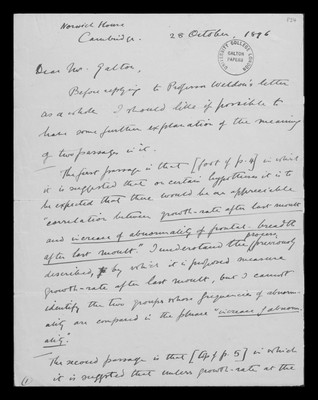 Norwich House
Cambridge.
28 October, 1896
UNIVERSITY COLLEGE LONDON
GALTON
PAPERS
Dear Mr. Galton,
Before replying to Professor Weldon's letter
as a whole I should like if possible to
have some further explanation of the meaning
of two passages in it.
The first passage is that [foot of p. 4] in which
it is suggested that on certain hypotheses it is to
be expected that there would be an appreciable
"correlation between growth-rate after last moult
and increase of abnormality of frontal breadth
after last moult." I understand the process, previously
described, by which it is proposed measure
growth-rate after last moult, but I cannot
identify the two groups whose frequencies of abnorm-
ality are compared in the phrase "increase of abnorm-
ality."
The second passage is that [top of p. 5] in which
(1) it is suggested that unless growth-rate at the